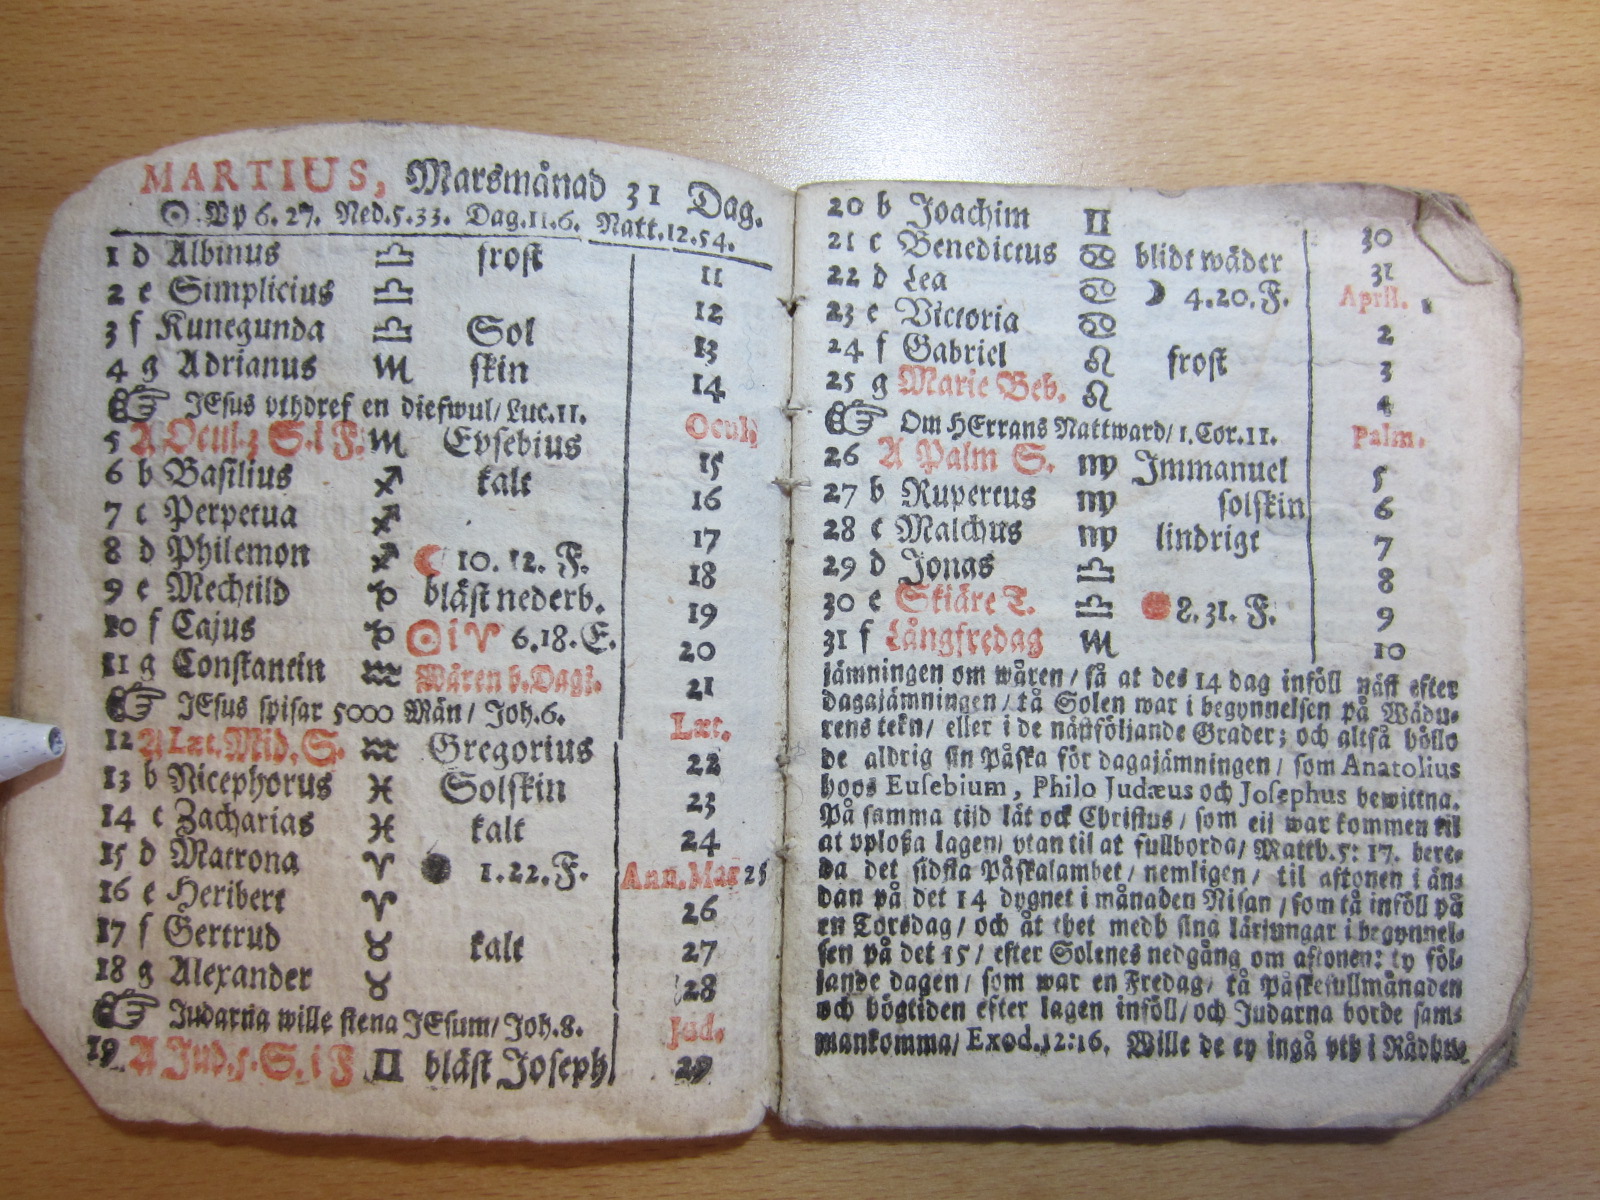 MARTIUS, Marsmånad 31 Dag.
☉. Vp 6. 27. Ned. 5. 33. Dag. 11. 6. Natt. 12. 54.
1 d Albinus ♎ frost 11
2 e Simplicius ♎ 12
3 f Kunegunda ♎ Sol 13
4 g Adrianus ♏ skin 14
☞ JEsus vthdref en diefwul/ Luc. 11.
5 A Ocul. 3 S. i F. ♏ Evsebius Ocul.
6 b Basilius ♐ kalt 15
7 c Perpetua ♐ 16
8 d Philemon ♐ ☾ 10. 12. F. 17
9 e Mechtild ♑ bläst nederb. 18
10 f Cajus ♑ ☉ i ♈ 6. 18. E. 19
11 g Constantin ♒ Wåren b. Dagj. 20
☞ JEsus spisar 5000 Män/ Joh. 6. 21
12 A Læt. Mid. S. ♒ Gregorius Læt.
13 b Nicephorus ♓ Solskin 22
14 c Zacharias ♓ kalt 23
15 d Matrona ♈ ● 1. 22. F. 24
16 e Heribert ♈ Ann. Mar 25
17 f Gertrud ♉ kalt 26
18 g Alexander ♉ 27
☞ Judarna wille stena JEsum/ Joh. 8. 28
19 A Jud. 5. S. i F ♊ bläst Joseph Jud.
29
20 b Joachim ♊ 30
21 c Benedictus ♋ blidt wäder 31
22 d Lea ♋ ☽ 4. 20. F. April. 1
23 e Victoria ♋ 2
24 f Gabriel ♌ frost 3
25 g Marie Beb. ♌ 4
☞ Om HErrans Nattward/ 1. Cor. 11.
26 A Palm S. ♍ Immanuel Palm.
27 b Rupertus ♍ solskin 5
28 c Malchus ♍ lindrigt 6
29 d Jonas ♎ 7
30 e Skiäre T. ♎ ● 8. 31. F. 8
31 f Långfredag ♏ 9
10
jämningen om wåren/ så at des 14 dag inföll näst efter
dagajämningen/ tå Solen war i begynnelsen på Wädu-
rens tekn/ eller i de nästföljande Grader; och altså höllo
de aldrig sin Påska för dagajämningen/ som Anatolius
hoos Eusebium, Philo Judæus och Josephus bewittna.
På samma tijd lät ock Christus/ som eij war kommen til
at vploßa lagen/ vtan til at fullborda/ Matth. 5: 17. bere-
da det sidsta Påskalambet/ nemligen/ til aftonen i än-
dan på det 14 dygnet i månaden Nisan/ som tå inföll på
en Torsdag/ och åt thet medh sina lärjungar i begynnel-
sen på det 15/ efter Solenes nedgång om aftonen: ty föl-
jande dagen/ som war en Fredag/ tå Påskefullmånaden
och högtiden efter lagen inföll/ och Judarna borde sam-
mankomma/ Exod. 12:16. Wille de ey ingå vth i Rådhu-